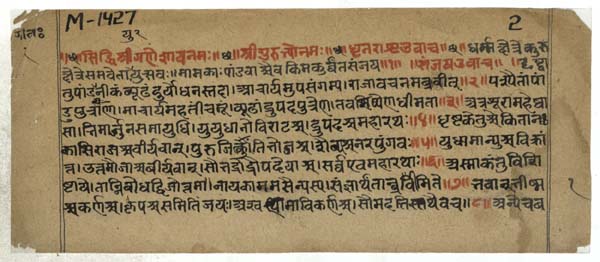 M-1427
2
यु२
॥सिद्धिश्रीगणेशायनमः॥ ॥श्रीगुरुभ्योनमः॥ ॥धृतराष्ट्रउवाच॥ धर्म्मक्षेत्रेकुरु
क्षेत्रेसमवेतायुयुत्सवः॥ मामकाःपांडवाश्चैवकिमकुर्वतसंजय॥१॥ संजयउवाच॥ दृष्ट्वा
तुपांडवानीकंव्यूढंदुर्योधनस्तदा॥ आचार्यमुपसंगम्यराजावचनमब्रवीत्॥२॥ पश्यैतांपां
डुपुत्राणामाचार्यमहतींचमूं॥ व्यूढांद्रुपदपुत्रेणतवशिष्येणधीमता॥३॥ अत्रशूरामहेष्वा
साभीमार्जुनसमायुधि॥ युयुधानोविराटश्चद्रुपदश्चमहारथः॥४॥ धृष्टकेतुश्चेकितानः
काशिराजश्चवीर्यवान्॥ पुरुजित्कुंतिभोजश्चशैब्यश्चनरपुंगवः॥५॥ युधामन्युश्चविक्रां
त॥ उत्तमौजाश्चवीर्यवान्॥ सौभद्रोद्रौपदेयाश्चसर्वएवमहारथाः॥६॥ अस्माकंतुविशि
ष्टाये॥ तान्निबोधद्विजोत्तम॥ नायकाममसैन्यस्यसंज्ञार्थंतान्ब्रवीमिते॥७॥ भवान्भीष्म
श्चकर्णश्च॥ कृपश्चसमितिंजयः॥ अश्वत्थामाविकर्णश्च॥ सौमदत्तिस्तथैवच॥८॥ अन्येचब